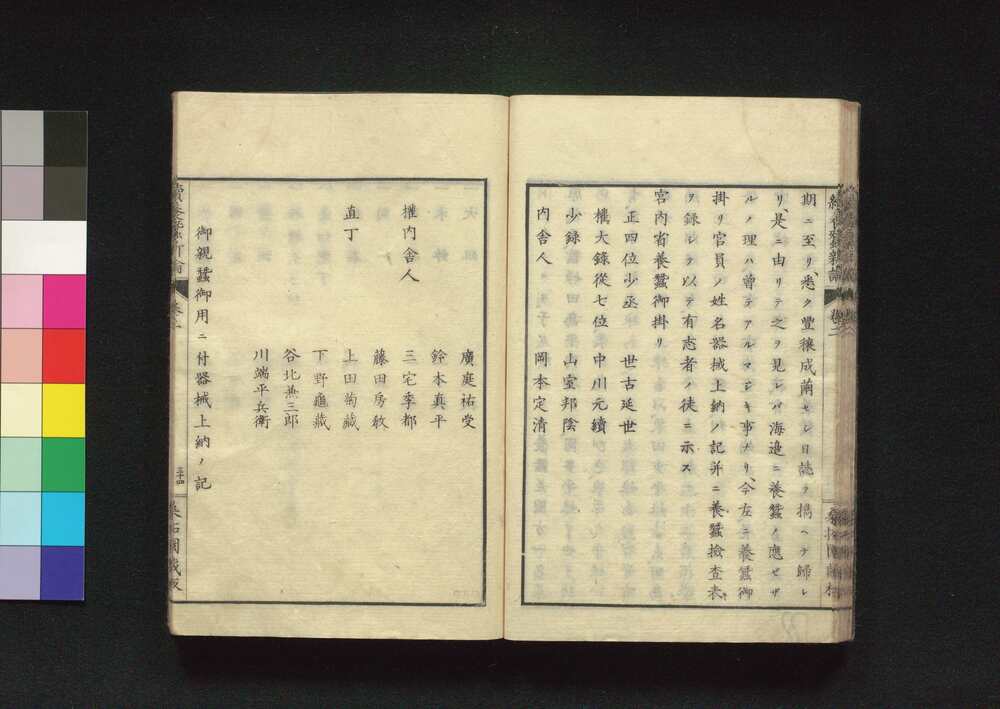 期ニ至リ、悉ク豐穰成繭セシ日誌ヲ揭ヘテ歸レ
リ、是ニ由リテ之ヲ見レバ海邊ニ養蠶ノ應セザ
ルノ理ハ曽テアルマジキ事ナリ、今左ニ養蠶御
掛リ官員ノ姓名器械上納ノ記并ニ養蠶撿查表
ヲ録シテ以テ有志者ノ徒ニ示ス
宮内省養蠶御掛リ
正四位少丞 世古延世
權大錄從七位 中川元績
少錄 山室邦陰
内舍人 岡本定清
廣庭祐受
鈴本真平
權内舍人 三宅季都
藤田房敎
直丁 上田菊藏
下野龜藏
谷北燕三郎
川端平兵衛
御親蠶御用ニ付器械上納ノ記
三十四